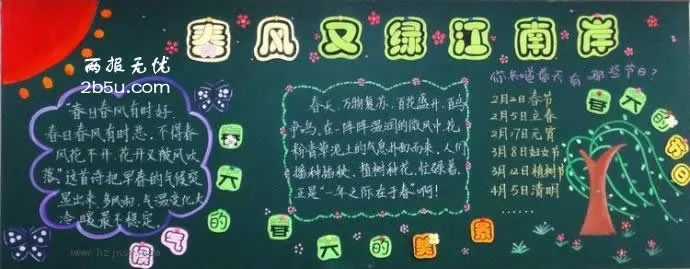 春风又绿江南岸
两报无忧
2b5u.com
"春日春风有时好,
春日春风有时恶,不得春
风花不开,花开又被风吹
落"这首诗把早春的气候突
显出来,多风雨,气温变化大
冷暖最不稳定
春天的气候
春天,万物复苏,百花盛开,百鸟
争鸣,在一阵阵温润的微风中,花
粉青草泥土的气息扑面而来,人们
播种插秧、植树种花,忙碌着,
正是"一年之际在于春"啊!
春天的美景
你知道春天有哪些节日?
2月2日春节
2月5日立春
2月17日元宵
3月8日妇女节
3月12日植树节
4月5日清明
......
春天的节日